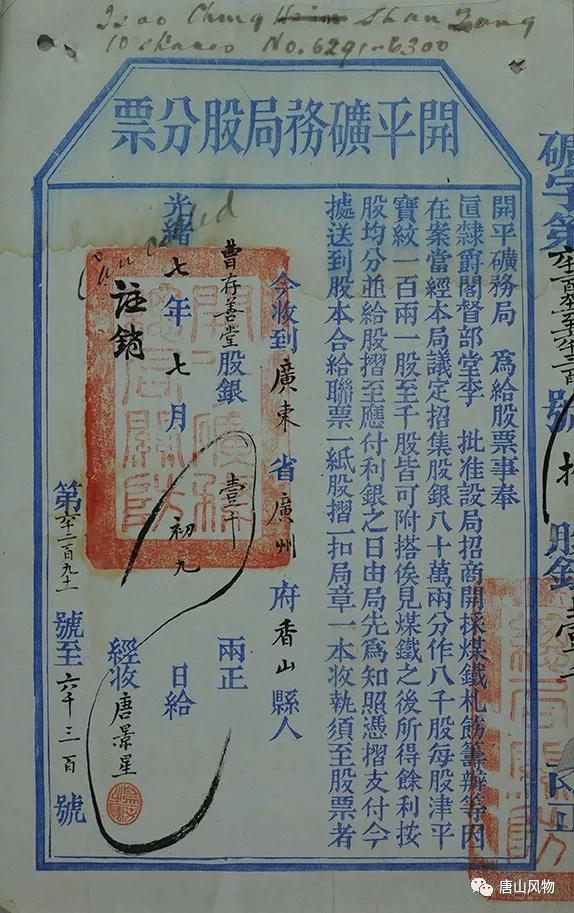 Tsao Chung Shan Tong
10 shares No. 6291-6300
開平礦務局股分票
礦字第 號 股銀壹千兩正
開平礦務局 爲給股票事奉
直隸爵閣督部堂李 批准設局招商開採煤鐵札飭籌辦等因
在案當經本局議定招集股銀八十萬兩分作八千股每股津平
寶紋一百兩一股至千股皆可附搭俟見煤鐵之後所得餘利按
股均分並給股摺至應付利銀之日由局先爲知照憑摺支付今
據送到股本合給聯票一紙股摺一扣局章一本收執須至股票者
今收到廣東省廣州府香山縣人
曹存善堂股銀壹千兩正
光緒七年七月初九日給
Cancelled
註銷
經收唐景星
第六千二百九十一號至六千三百號
開平礦務局關防
唐山风物